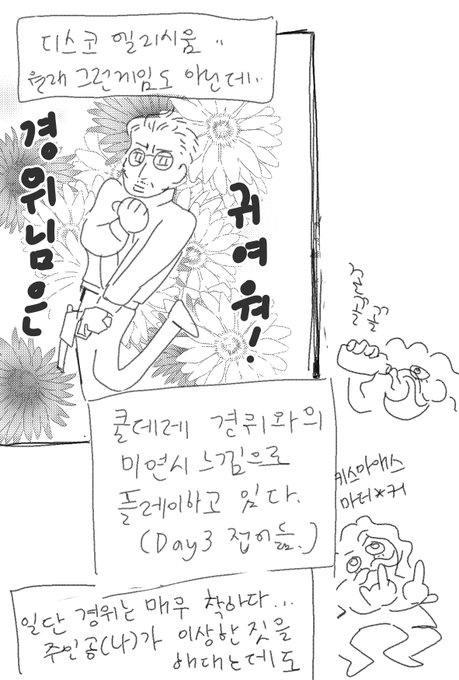 디스코 엘리시움..
원래 그런게임도 아닌데..
경위님은
귀여워!
꿀꺽꿀꺽
꿀꺽
쿨데레 경위와의
미연시 느낌으로
플레이하고 있다.
(Day3 접어듦.)
키스마애스
마더*커
일단 경위는 매우 착하다...
주인공(나)가 이상한 짓을
해대는데도